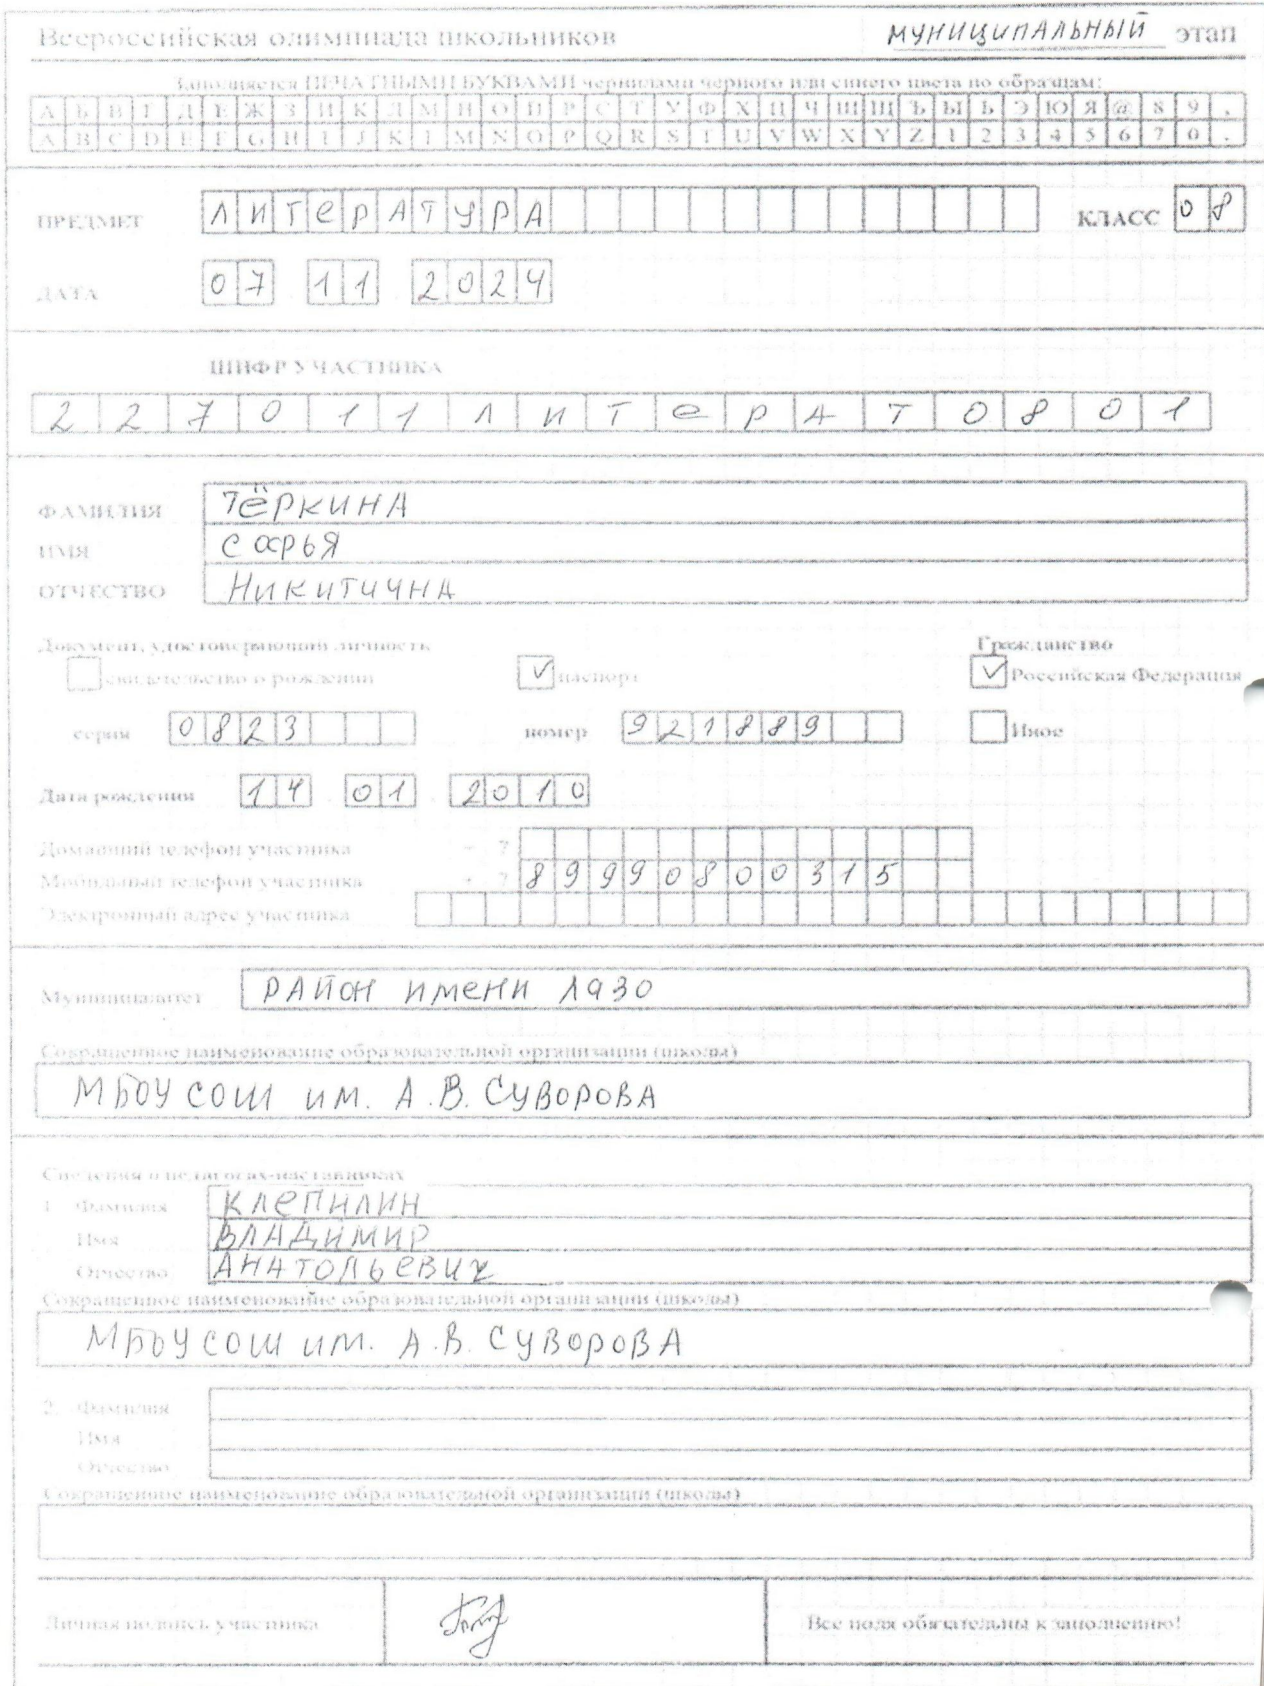 Всероссийская олимпиада школьников МУНИЦИПАЛЬНЫЙ этап
Заполняется ПЕЧАТНЫМИ БУКВАМИ чернилами черного или синего цвета по образцам:
А Б В Г Д Е Ж З И К Л М Н О П Р С Т У Ф Х Ц Ч Ш Щ Ъ Ы Ь Э Ю Я @ 8 9 ,
A B C D E F G H I J K L M N O P Q R S T U V W X Y Z 1 2 3 4 5 6 7 0 .
ПРЕДМЕТ ЛИТЕРАТУРА КЛАСС 08
ДАТА 07 11 2024
ШИФР УЧАСТНИКА
227011ЛИТЕРАТ0801
ФАМИЛИЯ ТЁРКИНА
ИМЯ СОФЬЯ
ОТЧЕСТВО НИКИТИЧНА
Документ, удостоверяющий личность Гражданство
свидетельство о рождении ✓ паспорт ✓ Российская Федерация
серия 0823 номер 921889 Иное
Дата рождения 14 01 2010
Домашний телефон участника + 7
Мобильный телефон участника + 7 89990800315
Электронный адрес участника
Муниципалитет РАЙОН ИМЕНИ ЛАЗО
Сокращенное наименование образовательной организации (школы)
МБОУ СОШ ИМ. А.В. СУВОРОВА
Сведения о педагогах-наставниках
1. Фамилия КЛЕПИЛИН
Имя ВЛАДИМИР
Отчество АНАТОЛЬЕВИЧ
Сокращенное наименование образовательной организации (школы)
МБОУ СОШ ИМ. А.В. СУВОРОВА
2. Фамилия
Имя
Отчество
Сокращенное наименование образовательной организации (школы)
Личная подпись участника Все поля обязательны к заполнению!